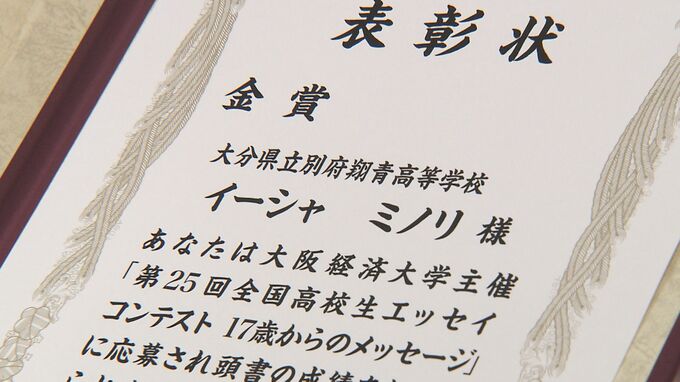 表彰状
金賞
大分県立別府翔青高等学校
イーシャ ミノリ 様
あなたは大阪経済大学主催
「第25回全国高校生エッセイ
コンテスト 17歳からのメッセージ」
に応募され頭書の成績を